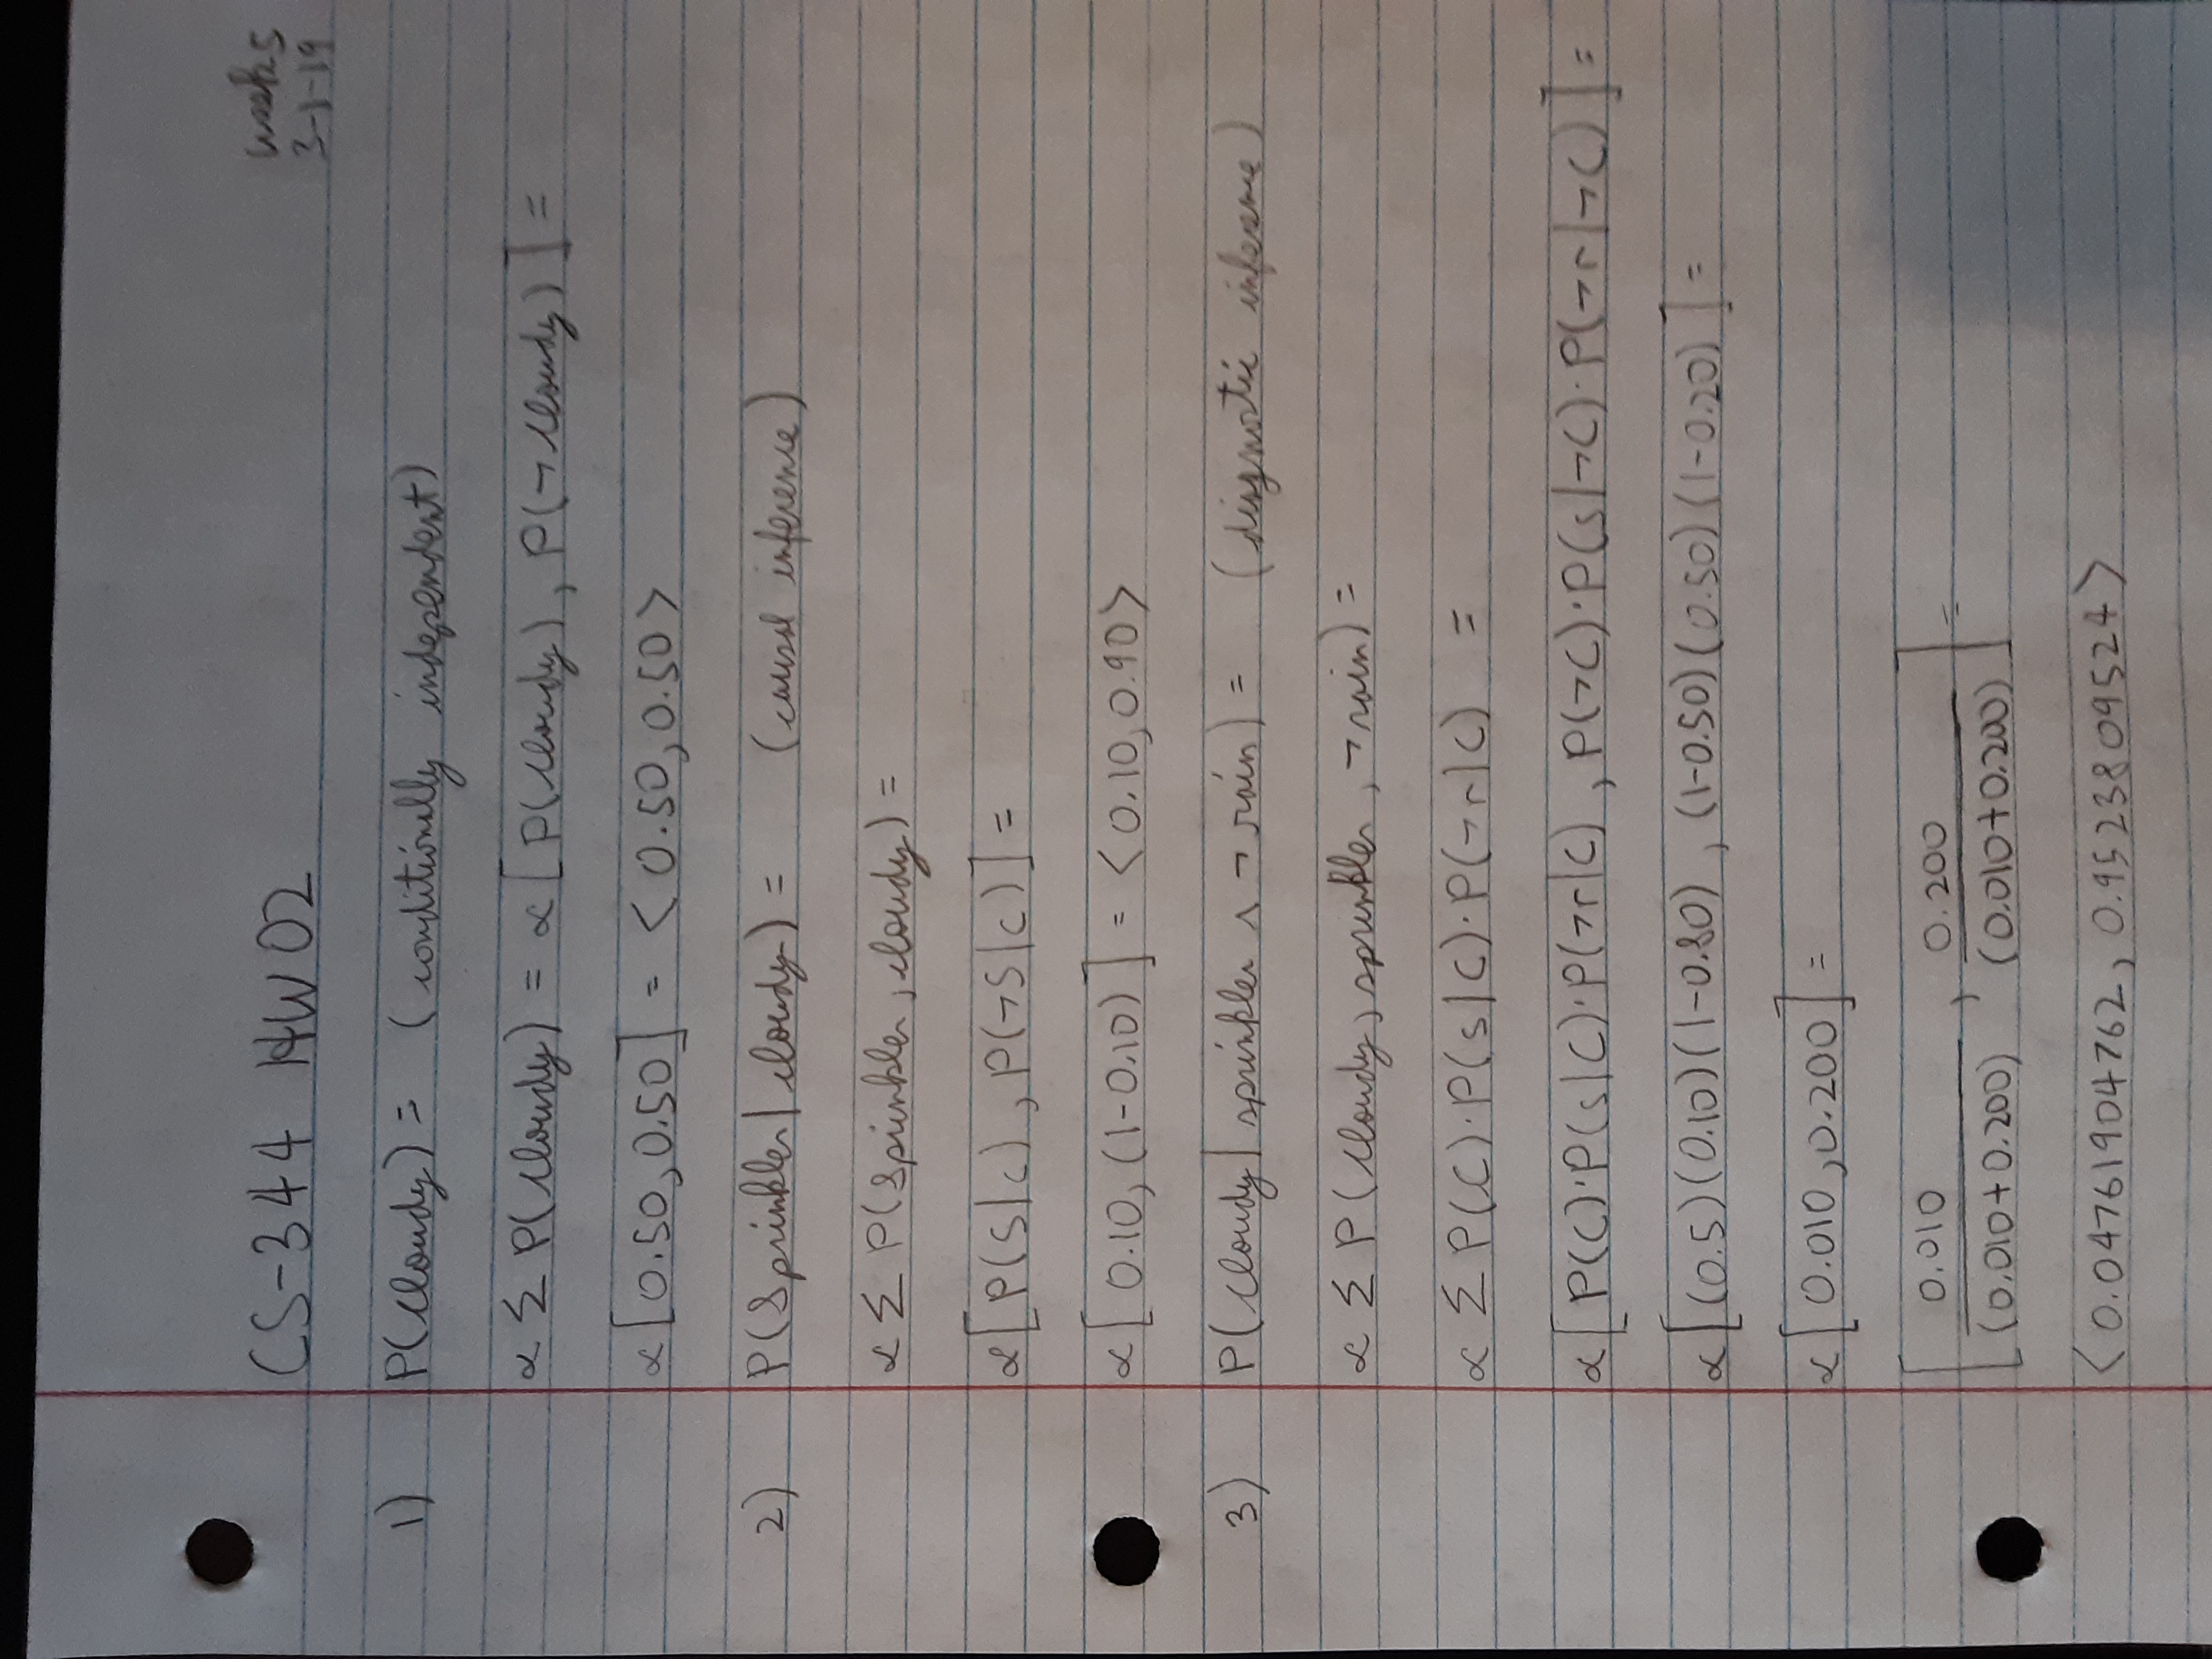 CS-344 HW02
week 5
3-1-19
1) P(Cloudy) = (conditionally independent)
∝ Σ P(Cloudy) = ∝ [P(Cloudy), P(¬Cloudy)] =
∝ [0.50, 0.50] = <0.50, 0.50>
2) P(Sprinkler | cloudy) = (causal inference)
∝ Σ P(Sprinkler, cloudy) =
∝ [P(S|c), P(¬S|c)] =
∝ [0.10, (1-0.10)] = <0.10, 0.90>
3) P(Cloudy | sprinkler ∧ ¬rain) = (diagnostic inference)
∝ Σ P(Cloudy, sprinkler, ¬rain) =
∝ Σ P(C)·P(s|C)·P(¬r|C) =
∝ [P(C)·P(s|C)·P(¬r|C), P(¬C)·P(s|¬C)·P(¬r|¬C)] =
∝ [(0.5)(0.10)(1-0.80), (1-0.50)(0.50)(1-0.20)] =
∝ [0.010, 0.200] =
[0.010/(0.010+0.200), 0.200/(0.010+0.200)] =
<0.04761904762, 0.9523809524>